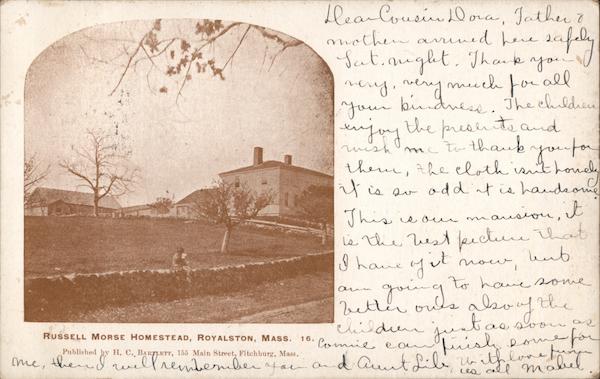 Dear Cousin Dora, Father &
mother arrived here safely
Sat. night. Thank you
very, very much for all
your kindness. The children
enjoy the presents and
wish me to thank you for
them, the cloth isn't lovely
it is so odd it is handsome
This is our mansion, it
is the best picture that
I have of it now, but
am going to have some
better ones also of the
children just as soon as
Connie can finish some for
me, then I will remember you and Aunt Lib. With love from
us all Mabel.
RUSSELL MORSE HOMESTEAD, ROYALSTON, MASS. 16.
Published by H. C. BARTLETT, 155 Main Street, Fitchburg, Mass.